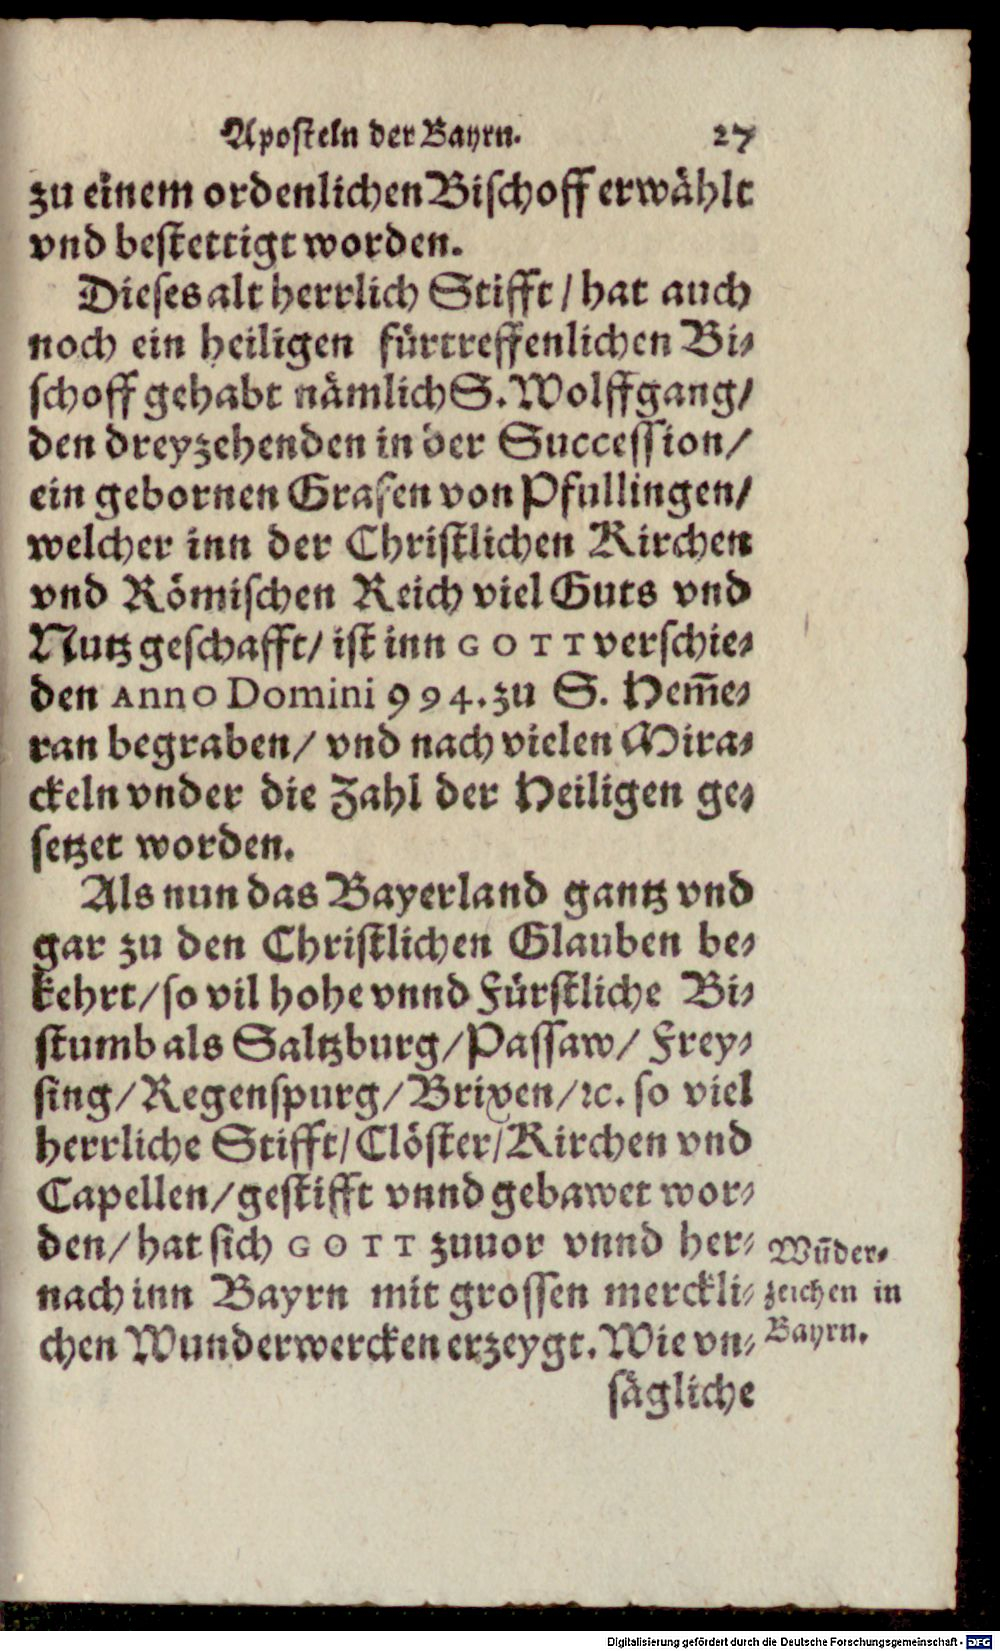 Aposteln der Bayrn. 27
zu einem ordenlichen Bischoff erwählt
vnd bestettigt worden.
Dieses alt herrlich Stifft / hat auch
noch ein heiligen fürtreffenlichen Bi-
schoff gehabt nämlich S. Wolffgang /
den dreyzehenden in der Succession /
ein gebornen Grafen von Pfullingen /
welcher inn der Christlichen Kirchen
vnd Römischen Reich viel Guts vnd
Nutz geschafft / ist inn GOTT verschie-
den Anno Domini 994. zu S. Hem̄e-
ran begraben / vnd nach vielen Mira-
ckeln vnder die Zahl der Heiligen ge-
setzet worden.
Als nun das Bayerland gantz vnd
gar zu den Christlichen Glauben be-
kehrt / so vil hohe vnnd Fürstliche Bi-
stumb als Saltzburg / Passaw / Frey-
sing / Regenspurg / Brixen / ꝛc. so viel
herrliche Stifft / Clöster / Kirchen vnd
Capellen / gestifft vnnd gebawet wor-
den / hat sich GOTT zuuor vnnd her-
nach inn Bayrn mit grossen merckli-
chen Wunderwercken erzeygt. Wie vn-
sägliche
Wun̄der-
zeichen in
Bayrn.
Digitalisierung gefördert durch die Deutsche Forschungsgemeinschaft - DFG